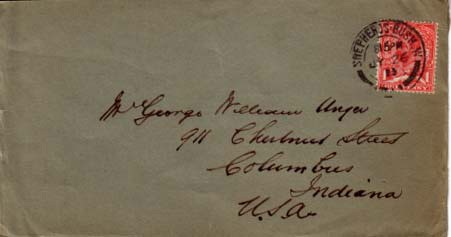 SHEPHERDS-BUSH. W
8.15PM
1
Mr George William Unger
911 Chestnut Street
Columbus
Indiana
U.S.A.